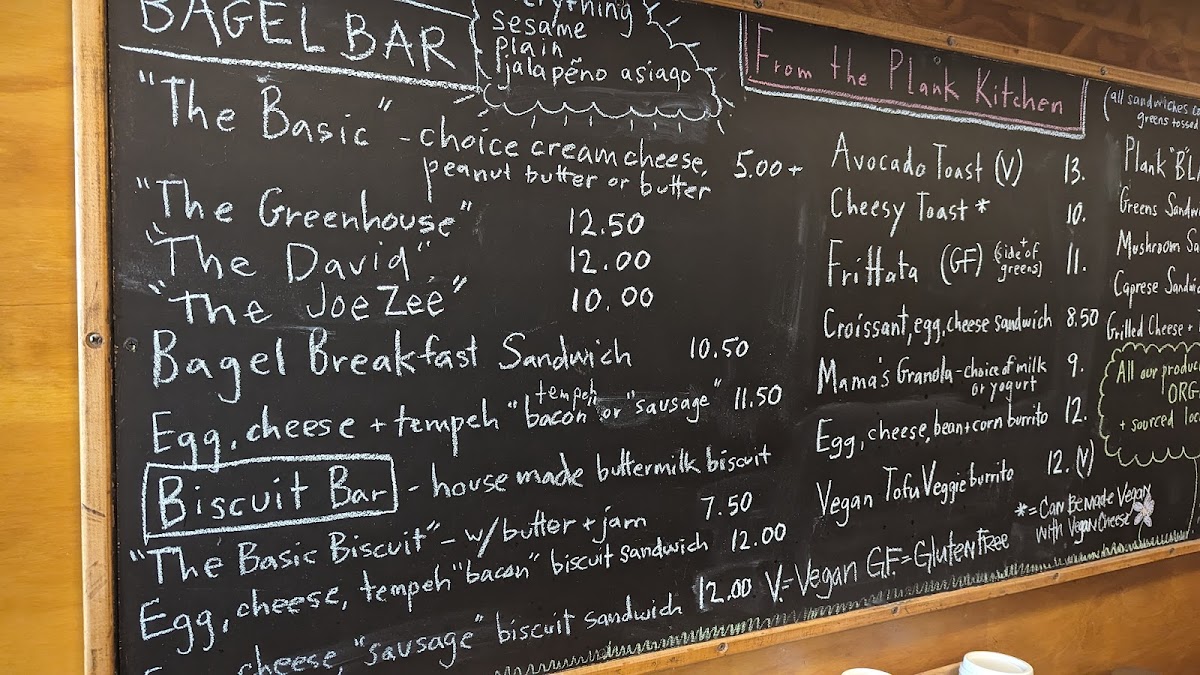 BAGEL BAR
everything
sesame
plain
jalapeño asiago
"The Basic" - choice cream cheese, 5.00+
peanut butter or butter
"The Greenhouse" 12.50
"The David" 12.00
"The Joe Zee" 10.00
Bagel Breakfast Sandwich 10.50
tempeh
Egg, cheese + tempeh "bacon" or "sausage" 11.50
Biscuit Bar - house made buttermilk biscuit
"The Basic Biscuit" - w/ butter + jam 7.50
Egg, cheese, tempeh "bacon" biscuit sandwich 12.00
cheese, "sausage" biscuit sandwich 12.00
From the Plank Kitchen
Avocado Toast (V) 13.
Cheesy Toast * 10.
Frittata (GF) (side of greens) + 11.
Croissant, egg, cheese sandwich 8.50
Mama's Granola - choice of milk 9.
or yogurt
Egg, cheese, bean + corn burrito 12.
Vegan Tofu Veggie burrito 12. (V)
*= Can Be Made Vegan
with Vegan Cheese
V= Vegan GF= Gluten Free
(all sandwiches
greens tossed
Plank
Greens
Mushroom
Caprese
Grilled Cheese +
All our
+ sourced